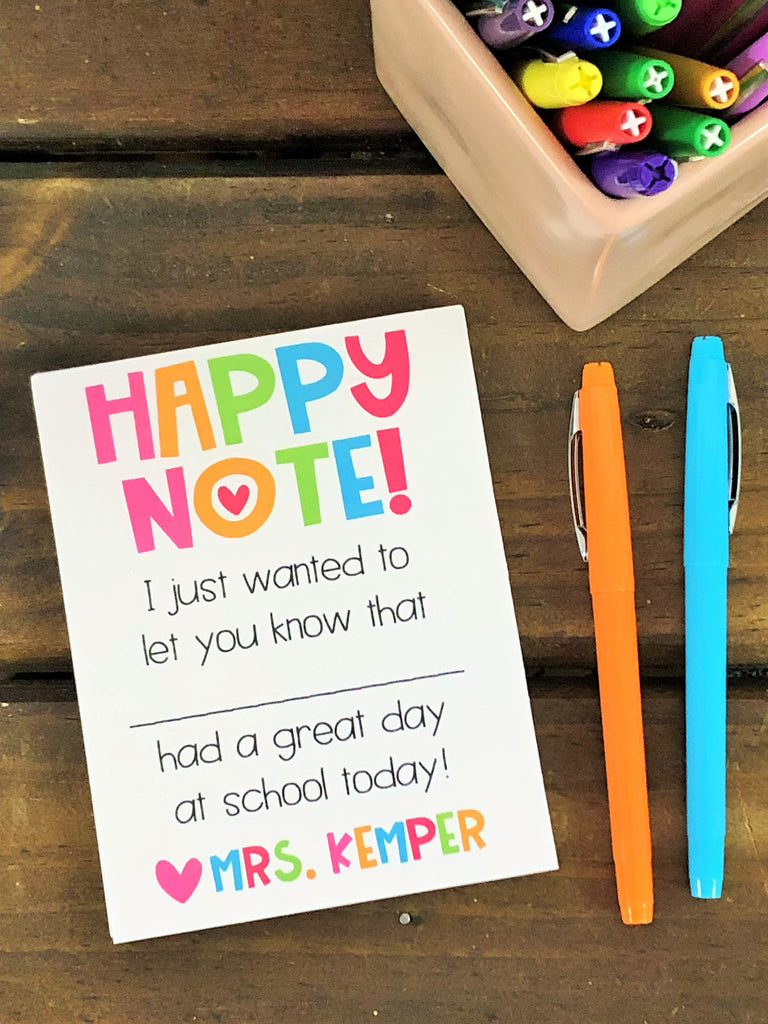 HAPPY
NOTE!
I just wanted to
let you know that
had a great day
at school today!
MRS. KEMPER